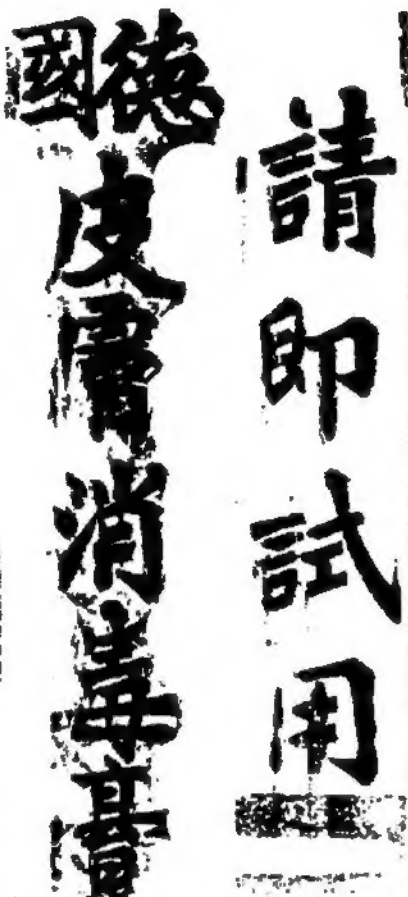 請即試用
德國
皮膚消毒膏